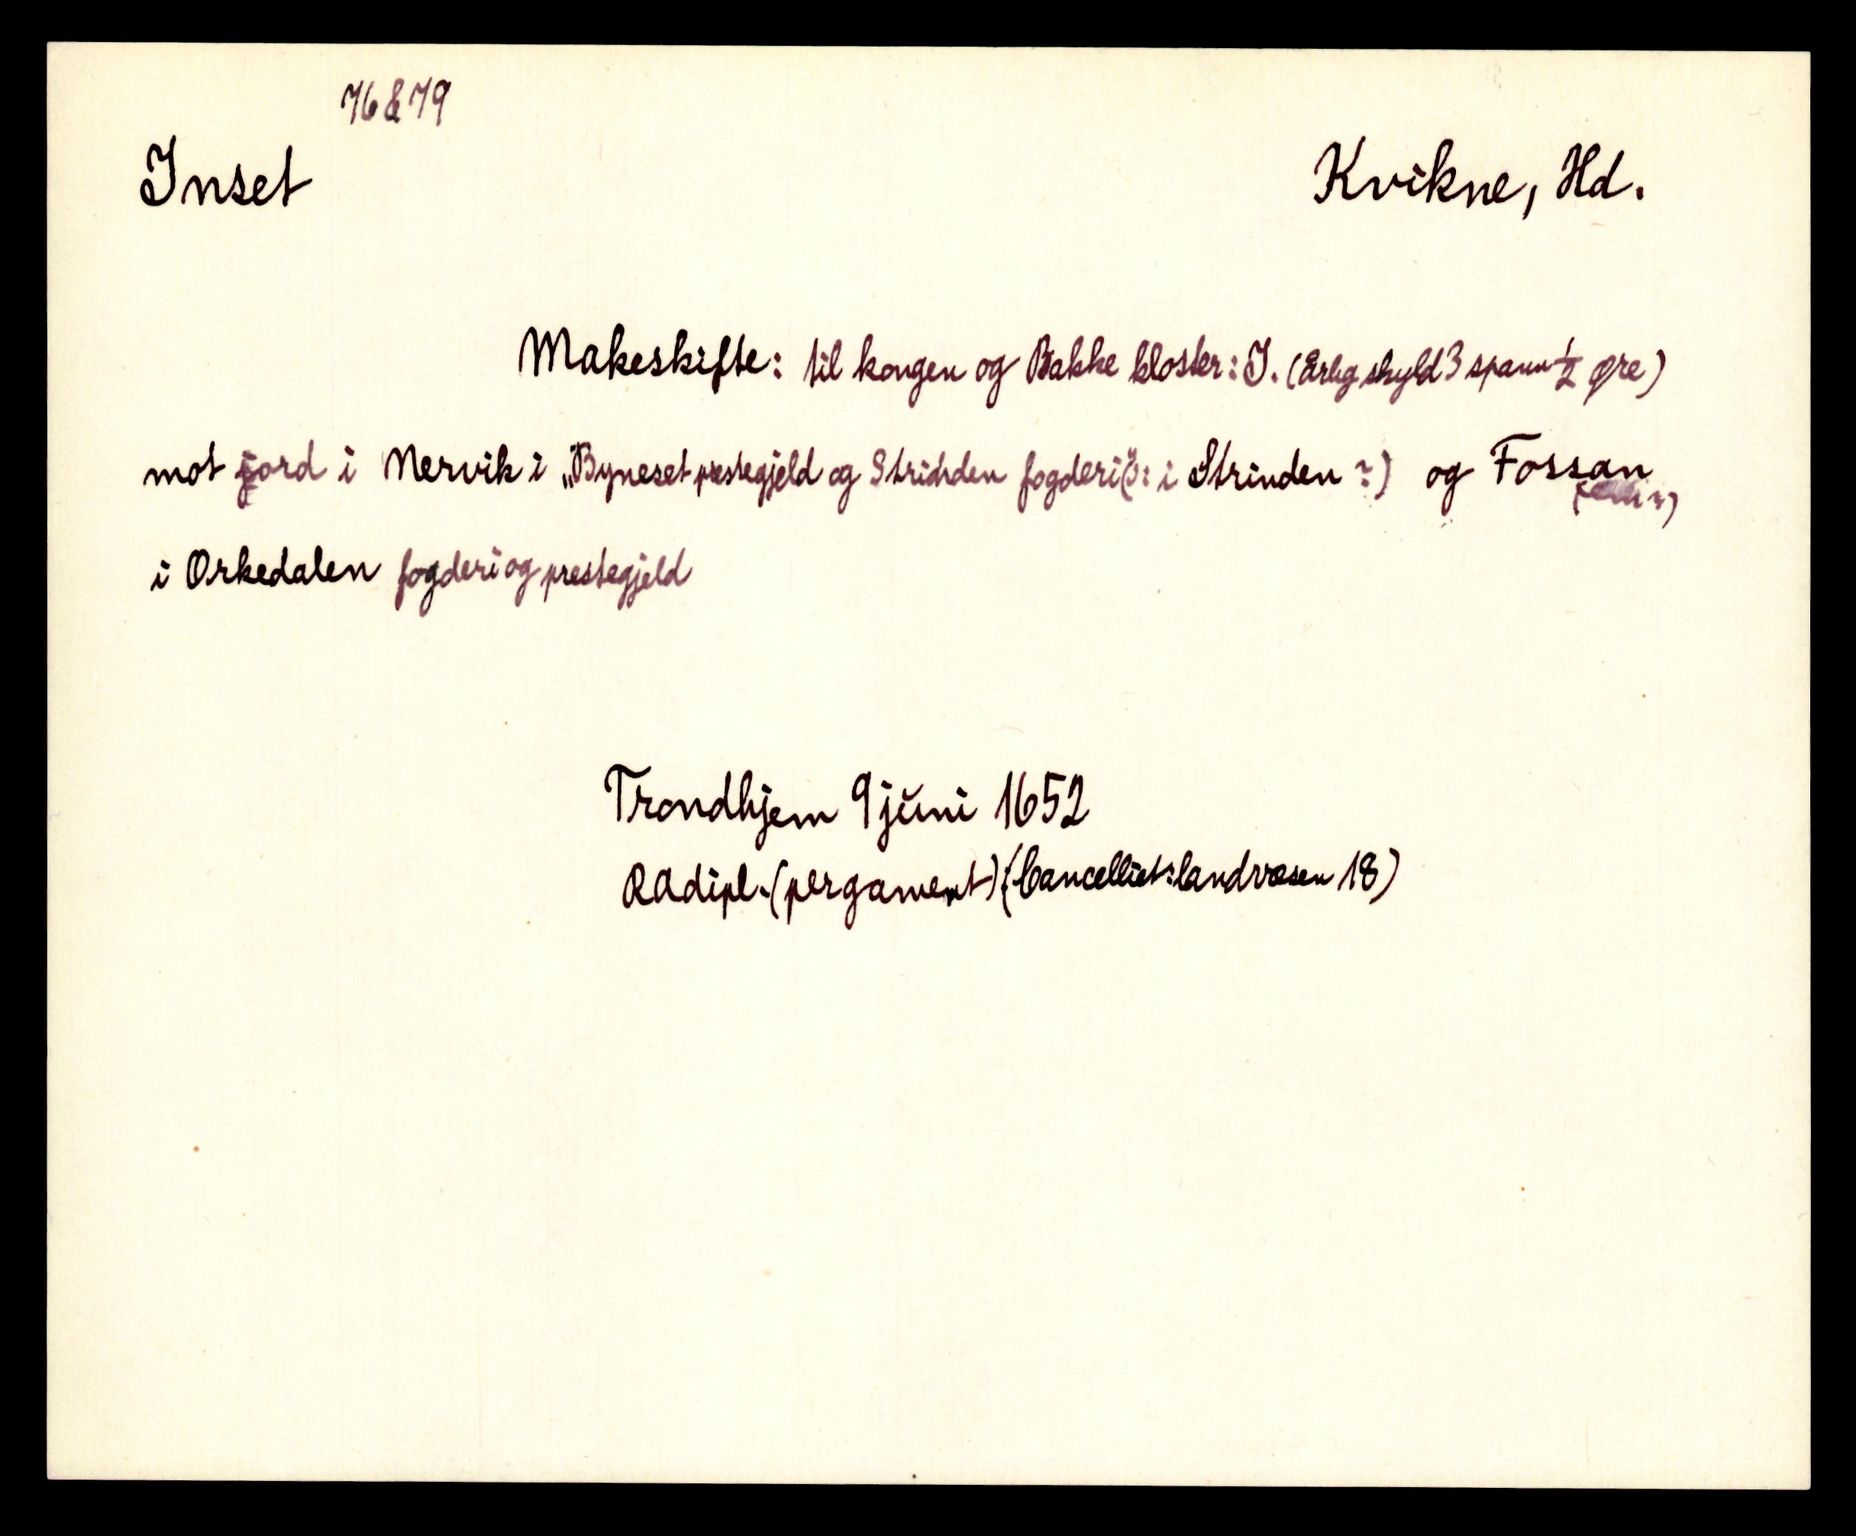 76 & 79
Inset
Kvikne, Hd.
Makeskifte: til kongen og Bakke kloster: I. (årlig skyld 3 spann ½ øre)
mot jord i Nervik i „Byneset prestegjeld og Strinden fogderi" (ɔ: i Strinden ?) og Fossan
i Orkedalen fogderi og prestegjeld
Trondhjem 9 juni 1652
RAdipl. (pergament) (Cancelliet: landvæsen 18)